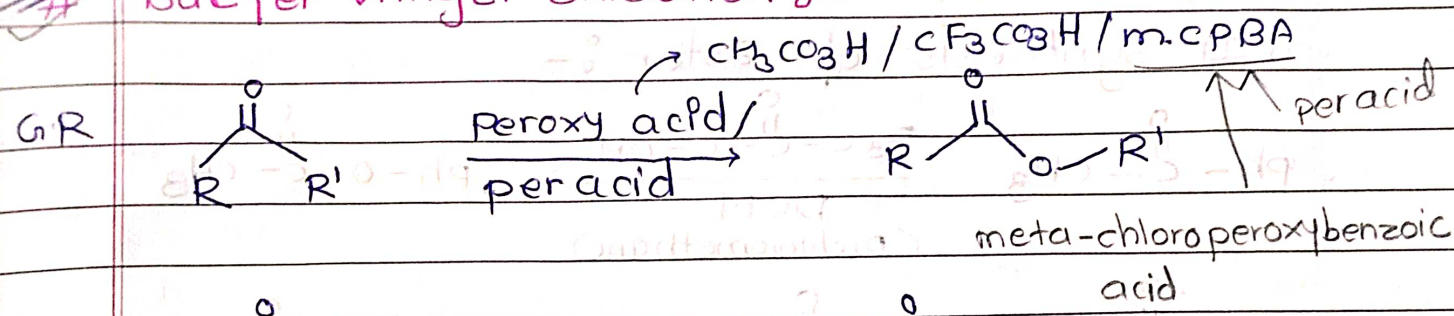 CH3CO3H / CF3CO3H / m.CPBA
GR
O
R R'
peroxy acid/
per acid
O
R O R'
per acid
meta-chloroperoxybenzoic
acid
O O